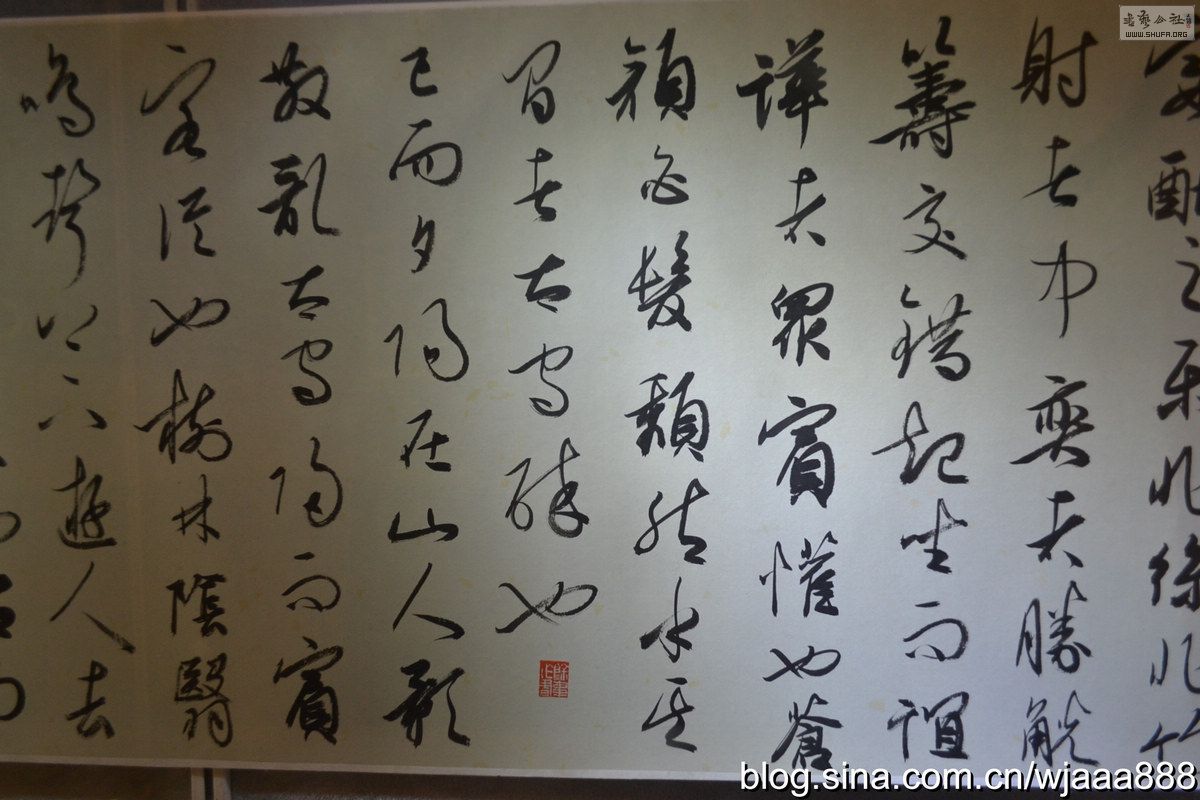 宴酣之樂非絲非竹
射者中奕者勝觥
籌交錯起坐而諠
譁者眾賓懽也蒼
顏白髮頹然乎其
間者太守醉也
已而夕陽在山人影
散亂太守歸而賓
客從也樹林陰翳
鳴聲上下遊人去
書藝公社
WWW.SHUFA.ORG
blog.sina.com.cn/wjaaa888